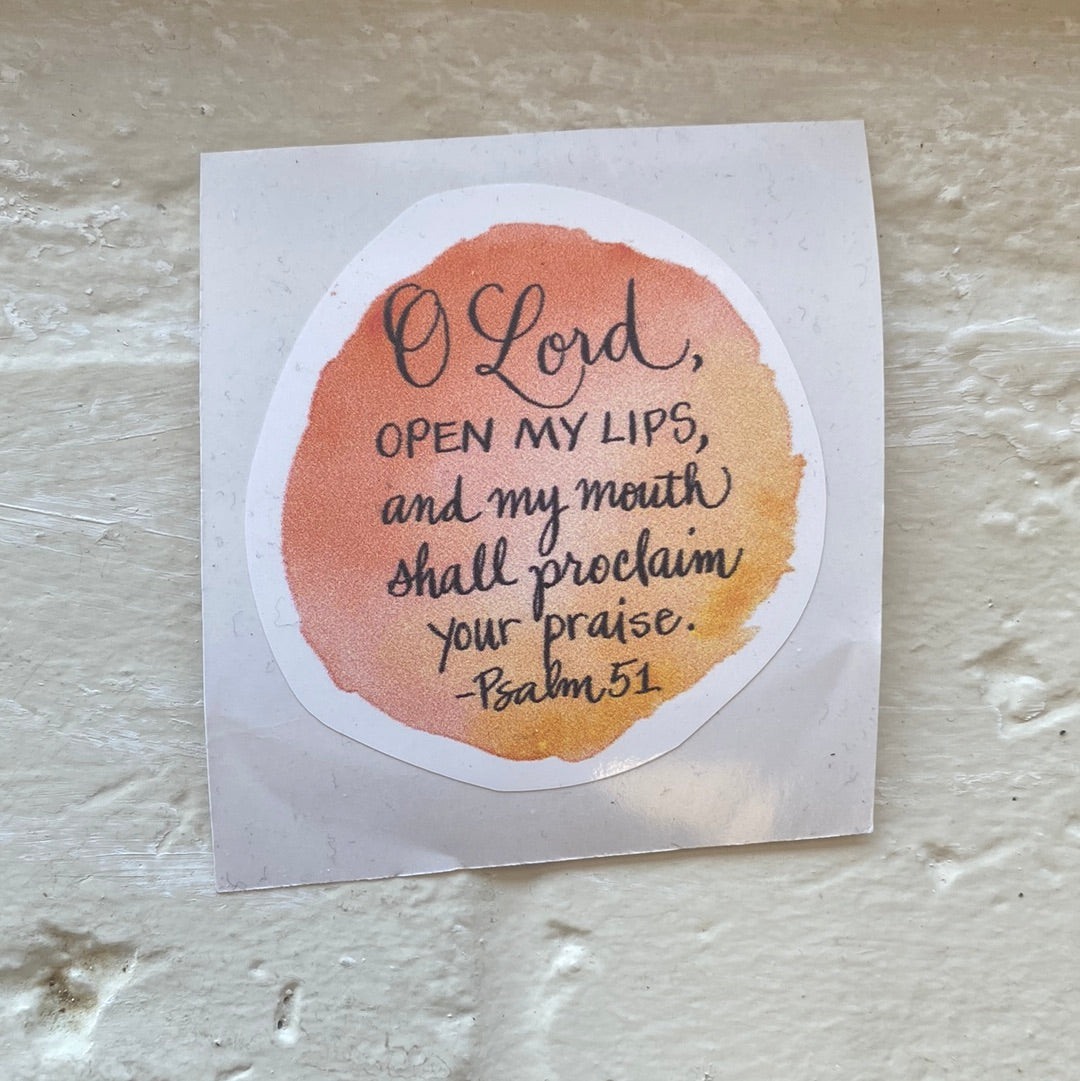 O Lord,
OPEN MY LIPS,
and my mouth
shall proclaim
your praise.
-Psalm 51